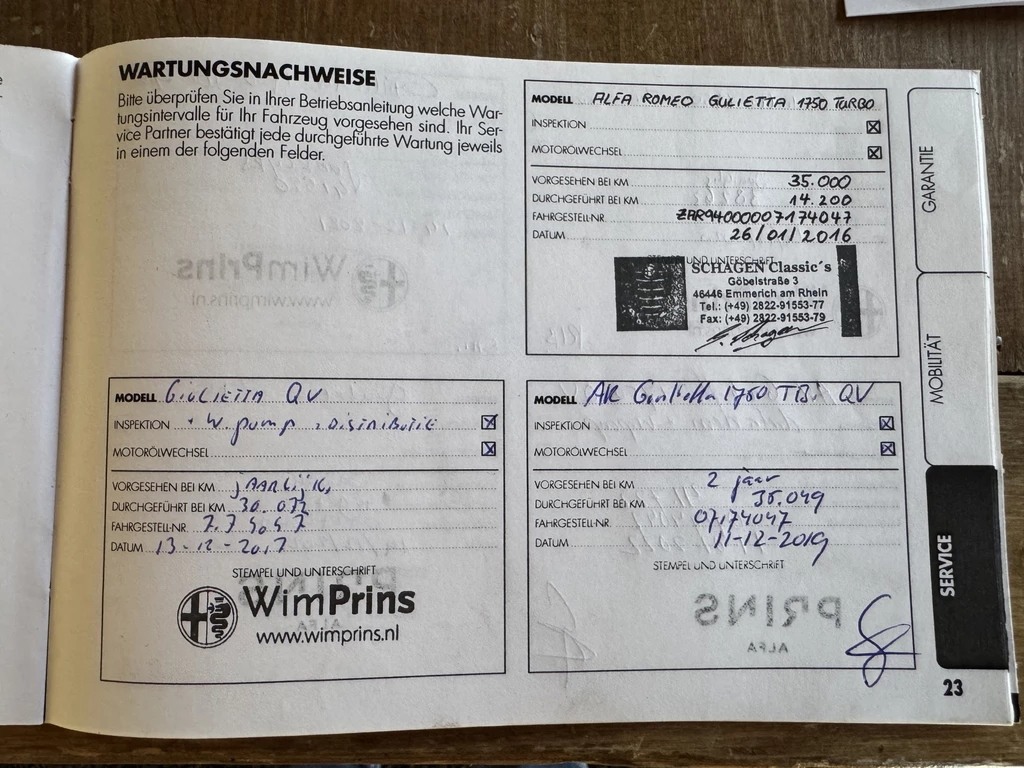 WARTUNGSNACHWEISE
Bitte überprüfen Sie in Ihrer Betriebsanleitung welche War-
tungsintervalle für Ihr Fahrzeug vorgesehen sind. Ihr Ser-
vice Partner bestätigt jede durchgeführte Wartung jeweils
in einem der folgenden Felder.
MODELL ALFA ROMEO GULIETTA 1750 TURBO
INSPEKTION
MOTORÖLWECHSEL
VORGESEHEN BEI KM 35.000
DURCHGEFÜHRT BEI KM 14.200
FAHRGESTELL-NR. ZAR94000007174047
DATUM 26/01/2016
STEMPEL UND UNTERSCHRIFT
SCHAGEN Classic's
Göbelstraße 3
46446 Emmerich am Rhein
Tel.: (+49) 2822-91553-77
Fax: (+49) 2822-91553-79
MODELL GIULIETTA QV
INSPEKTION + W. pump + DISTRIBUTIE
MOTORÖLWECHSEL
VORGESEHEN BEI KM JAARLIJK
DURCHGEFÜHRT BEI KM 30.072
FAHRGESTELL-NR.
DATUM 13-12-2017
STEMPEL UND UNTERSCHRIFT
WimPrins
www.wimprins.nl
MODELL AR Giulietta 1750 TBi QV
INSPEKTION
MOTORÖLWECHSEL
VORGESEHEN BEI KM 2 jaar
DURCHGEFÜHRT BEI KM 35.049
FAHRGESTELL-NR. 07174047
DATUM 11-12-2019
STEMPEL UND UNTERSCHRIFT
PRINS
ALFA
GARANTIE
MOBILITÄT
SERVICE
23